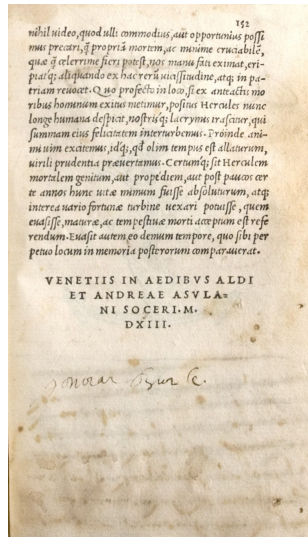 152
nihil uideo, quod ulli commodius, aut opportunius possi
mus precari, q̃ propriã mortem, ac minime cruciabilẽ,
quæ q̃ celerrime fieri potest, nos manu fati eximat, eri-
piatq; aliquando ex hac rerũ uicissitudine, atq; in pa-
triam reuocet. Quo profecto in loco, si ex anteactis mo
ribus hominum exitus metimur, potius Hercules nunc
longe humana despicit, nostrisq; lacrymis irascitur, qui
summam eius felicitatem interturbemus. Proinde ani-
mi uim excitemus, idq; qd̃ olim tempus est allaturum,
uirili prudentia præuertamus. Certumq; sit Herculem
mortalem genitum, aut propediem, aut post paucos cer
te annos hunc uitæ nimum fuisse absoluturum, atq;
interea uario fortunæ turbine uexari potuisse, quem
euasisse, maturæ, ac tempestiuæ morti acceptum est refe
rendum. Euasit autem eo demum tempore, quo sibi per
petuo locum in memoria posterorum comparauerat.
VENETIIS IN AEDIBVS ALDI
ET ANDREAE ASVLA-
NI SOCERI. M.
DXIII.